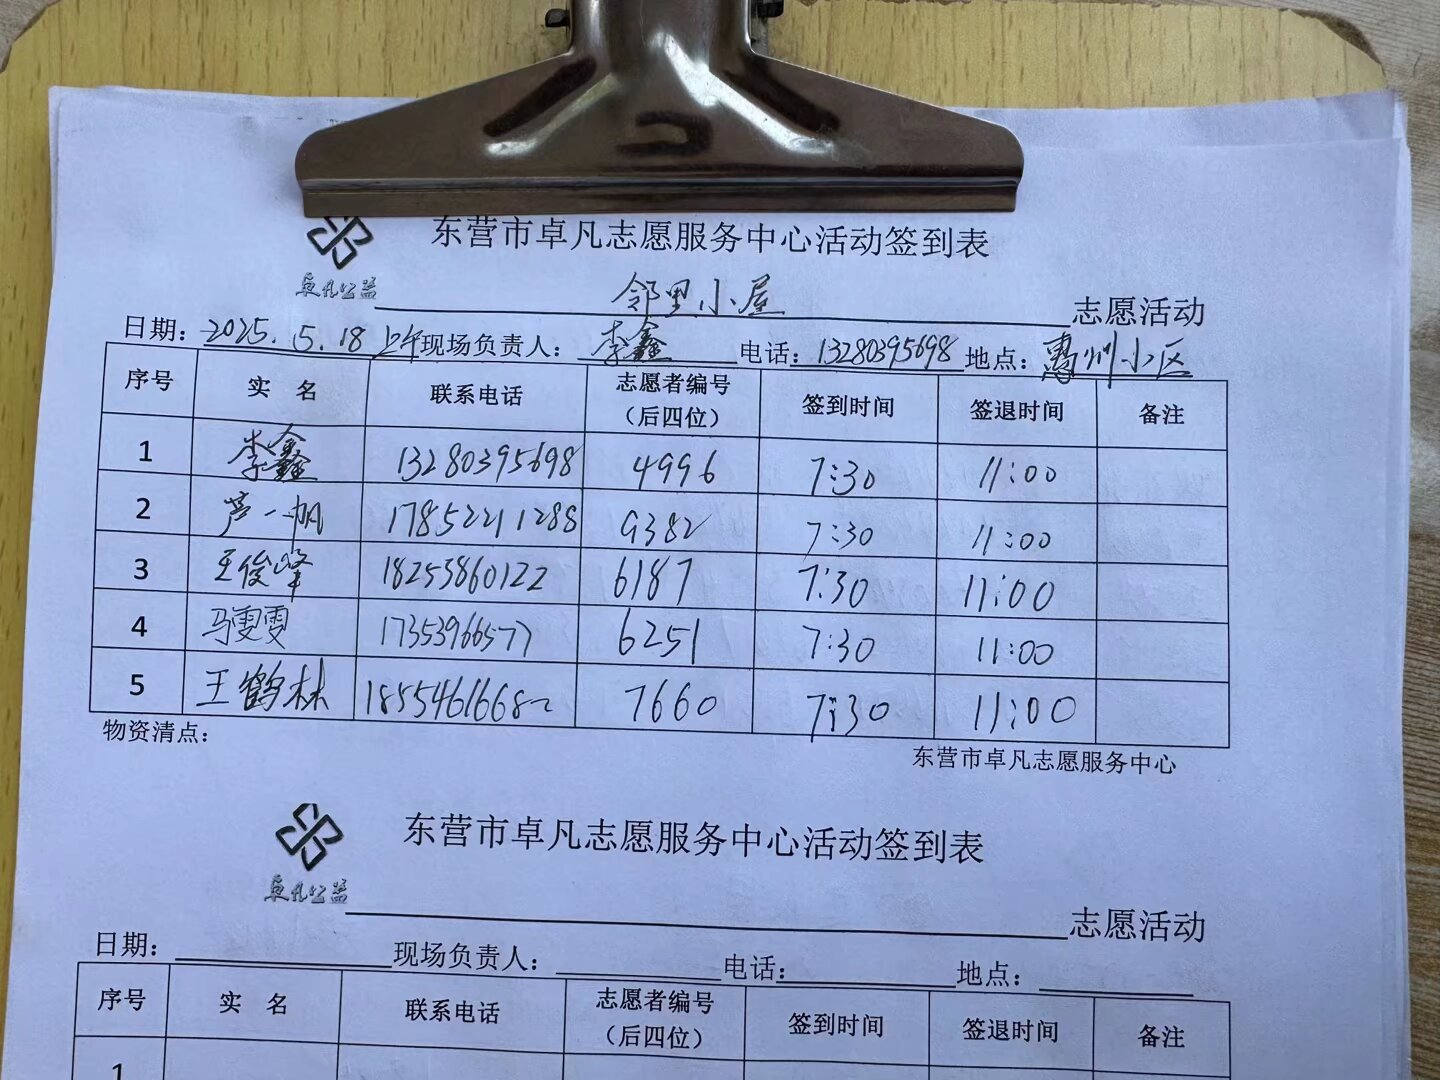 东营市卓凡志愿服务中心活动签到表
卓凡公益
邻里小屋 志愿活动
日期：2025.5.18上午 现场负责人：李鑫 电话：13280395698 地点：惠州小区
序号 实 名 联系电话 志愿者编号（后四位） 签到时间 签退时间 备注
1 李鑫 13280395698 4996 7:30 11:00
2 芦一帆 17852211288 9382 7:30 11:00
3 王俊峰 18253860122 6187 7:30 11:00
4 马雯雯 17353966577 6251 7:30 11:00
5 王鹤林 18554616682 7660 7:30 11:00
物资清点：
东营市卓凡志愿服务中心
东营市卓凡志愿服务中心活动签到表
卓凡公益
志愿活动
日期： 现场负责人： 电话： 地点：
序号 实 名 联系电话 志愿者编号（后四位） 签到时间 签退时间 备注
1